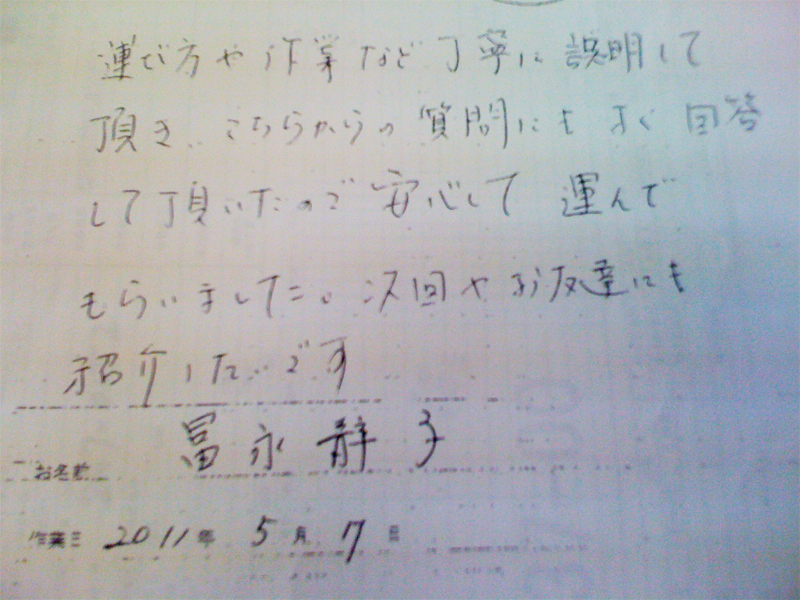 運び方や作業など丁寧に説明して
頂き、こちらからの質問にもすぐ回答
して頂いたので安心して運んで
もらいました。次回やお友達にも
紹介したいです
お名前 冨永静子
作業日 2011年 5月 7日